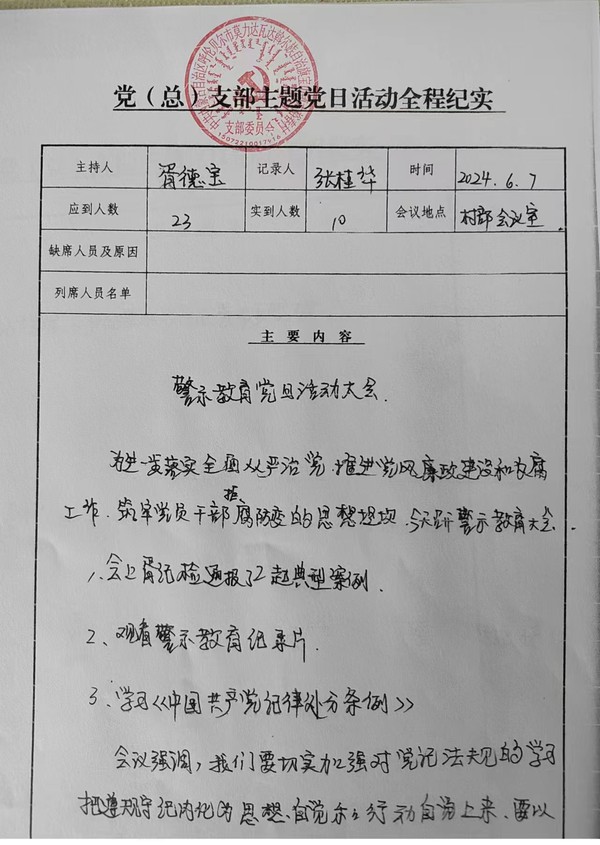 党（总）支部主题党日活动全程纪实
主持人 胥德宝 记录人 张桂华 时间 2024.6.7
应到人数 23 实到人数 10 会议地点 村部会议室
缺席人员及原因
列席人员名单
主要内容
警示教育党日活动大会.
为进一步落实全面从严治党,推进党风廉政建设和反腐
工作.筑牢党员干部拒腐防变的思想堤坝.今天召开警示教育大会.
1、会上胥纪检通报了2起典型案例.
2、观看警示教育纪录片.
3、学习《中国共产党纪律处分条例》
会议强调,我们要切实加强对党纪法规的学习
把遵规守纪内化为思想、自觉 行动自觉上来、要以